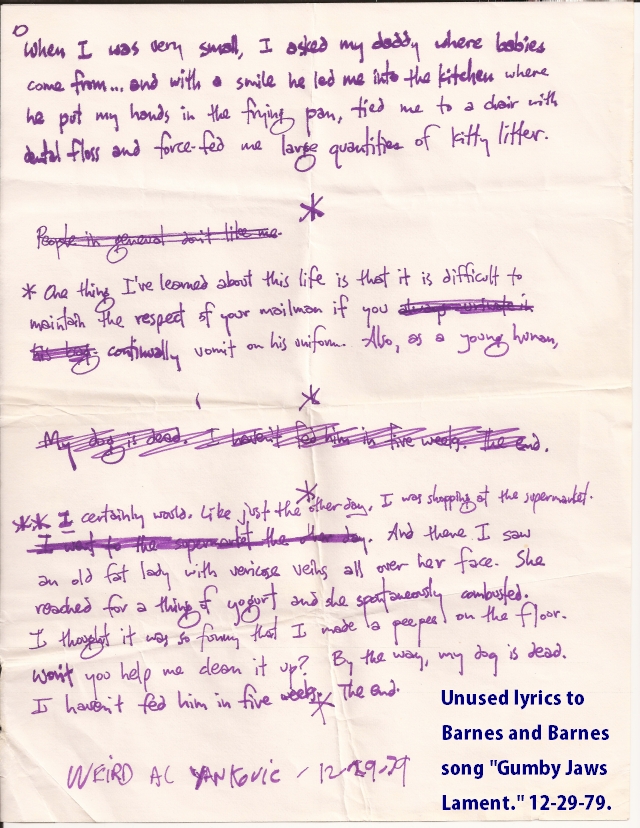 When I was very small, I asked my daddy where babies
come from... and with a smile he led me into the kitchen where
he put my hands in the frying pan, tied me to a chair with
dental floss and force-fed me large quantities of kitty litter.
*
People in general don't like me.
* One thing I've learned about this life is that it is difficult to
maintain the respect of your mailman if you always urinate in
his bag. continually vomit on his uniform. Also, as a young human,
*
My dog is dead. I haven't fed him in five weeks. The end.
*
** I certainly would. Like just the other day, I was shopping at the supermarket.
I went to the supermarket the other day. And there I saw
an old fat lady with vericose veins all over her face. She
reached for a thing of yogurt and she spontaneously combusted.
I thought it was so funny that I made a peepee on the floor.
Won't you help me clean it up? By the way, my dog is dead.
I haven't fed him in five weeks. The end.
*
WEIRD AL YANKOVIC / 12-29-79
Unused lyrics to
Barnes and Barnes
song "Gumby Jaws
Lament." 12-29-79.